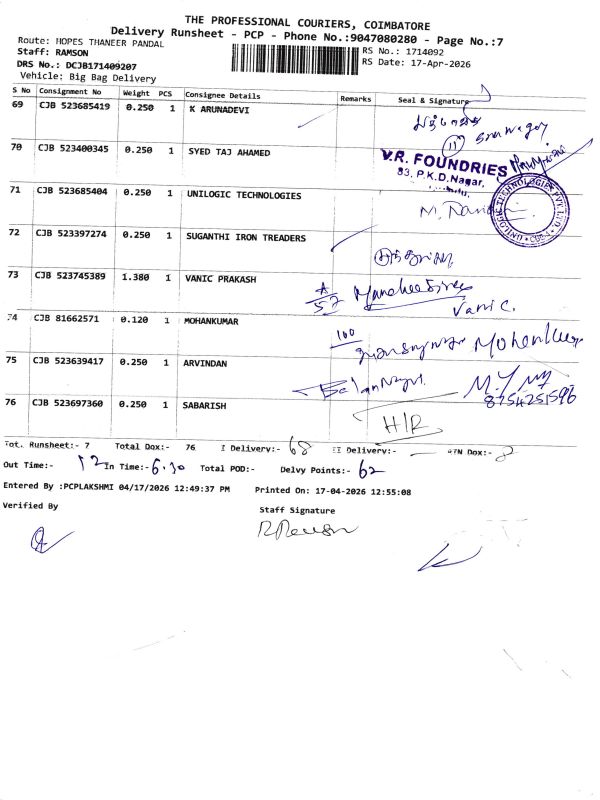 THE PROFESSIONAL COURIERS, COIMBATORE
Delivery Runsheet - PCP - Phone No.:9047080280 - Page No.:7
Route: HOPES THANEER PANDAL
RS No.: 1714092
Staff: RAMSON
RS Date: 17-Apr-2026
DRS No.: DCJB171409207
Vehicle: Big Bag Delivery
S No Consignment No Weight PCS Consignee Details Remarks Seal & Signature
69 CJB 523685419 0.250 1 K ARUNADEVI
70 CJB 523400345 0.250 1 SYED TAJ AHAMED
V.R. FOUNDRIES
83, P.K.D.Nagar,
71 CJB 523685404 0.250 1 UNILOGIC TECHNOLOGIES
UNILOGIC TECHNOLOGIES PVT. LTD.
72 CJB 523397274 0.250 1 SUGANTHI IRON TREADERS
73 CJB 523745389 1.380 1 VANIC PRAKASH
Vani C.
74 CJB 81662571 0.120 1 MOHANKUMAR
100
75 CJB 523639417 0.250 1 ARVINDAN
8754251596
76 CJB 523697360 0.250 1 SABARISH
H/R
Tot. Runsheet:- 7 Total Dox:- 76 I Delivery:- 68 II Delivery:- RTN Dox:- 8
Out Time:- 12 In Time:- 6.30 Total POD:- Delvy Points:- 62
Entered By :PCPLAKSHMI 04/17/2026 12:49:37 PM Printed On: 17-04-2026 12:55:08
Verified By
Staff Signature